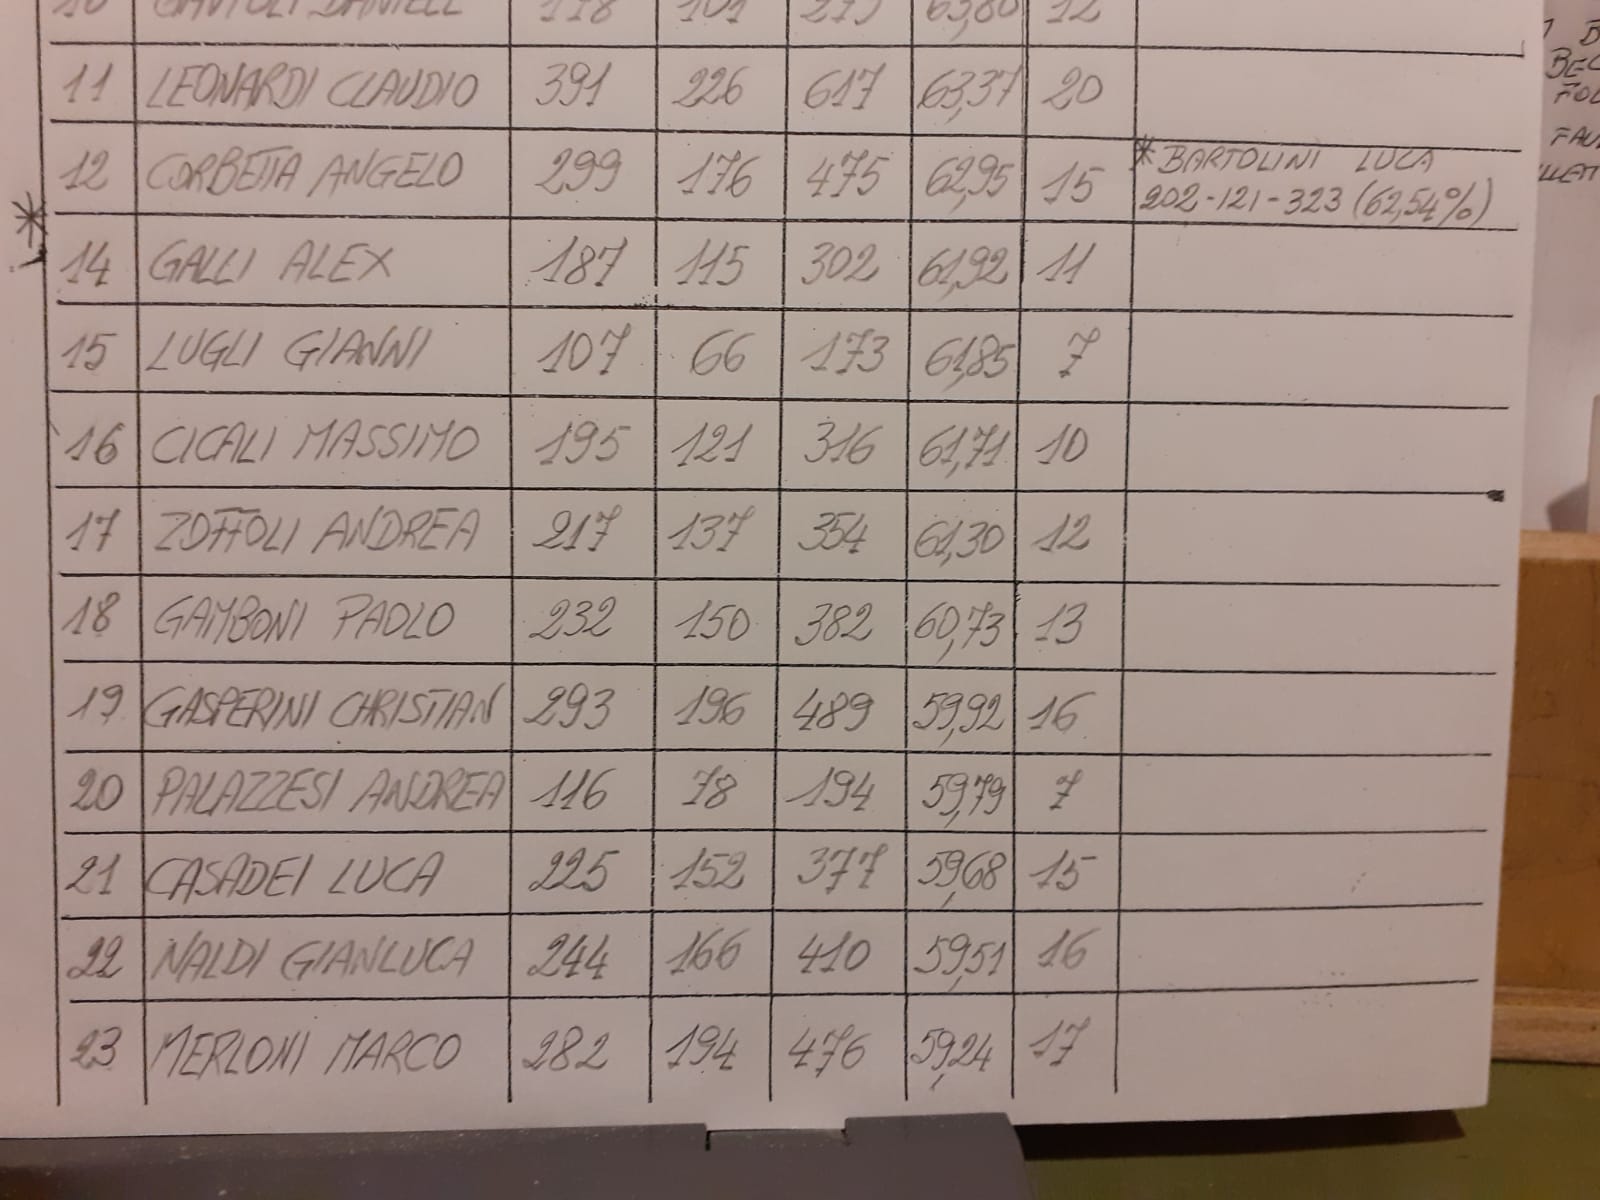 11 LEONARDI CLAUDIO 391 226 617 63,37 20
12 CORBETTA ANGELO 299 176 475 62,95 15
* BARTOLINI LUCA
202-121-323 (62,54%)
*
14 GALLI ALEX 187 115 302 61,92 11
15 LUGLI GIANNI 107 66 173 61,85 7
16 CICALI MASSIMO 195 121 316 61,71 10
17 ZOFFOLI ANDREA 217 137 354 61,30 12
18 GAMBONI PAOLO 232 150 382 60,73 13
19 GASPERINI CHRISTIAN 293 196 489 59,92 16
20 PALAZZESI ANDREA 116 78 194 59,79 7
21 CASADEI LUCA 225 152 377 59,68 15
22 NALDI GIANLUCA 244 166 410 59,51 16
23 MERLONI MARCO 282 194 476 59,24 17